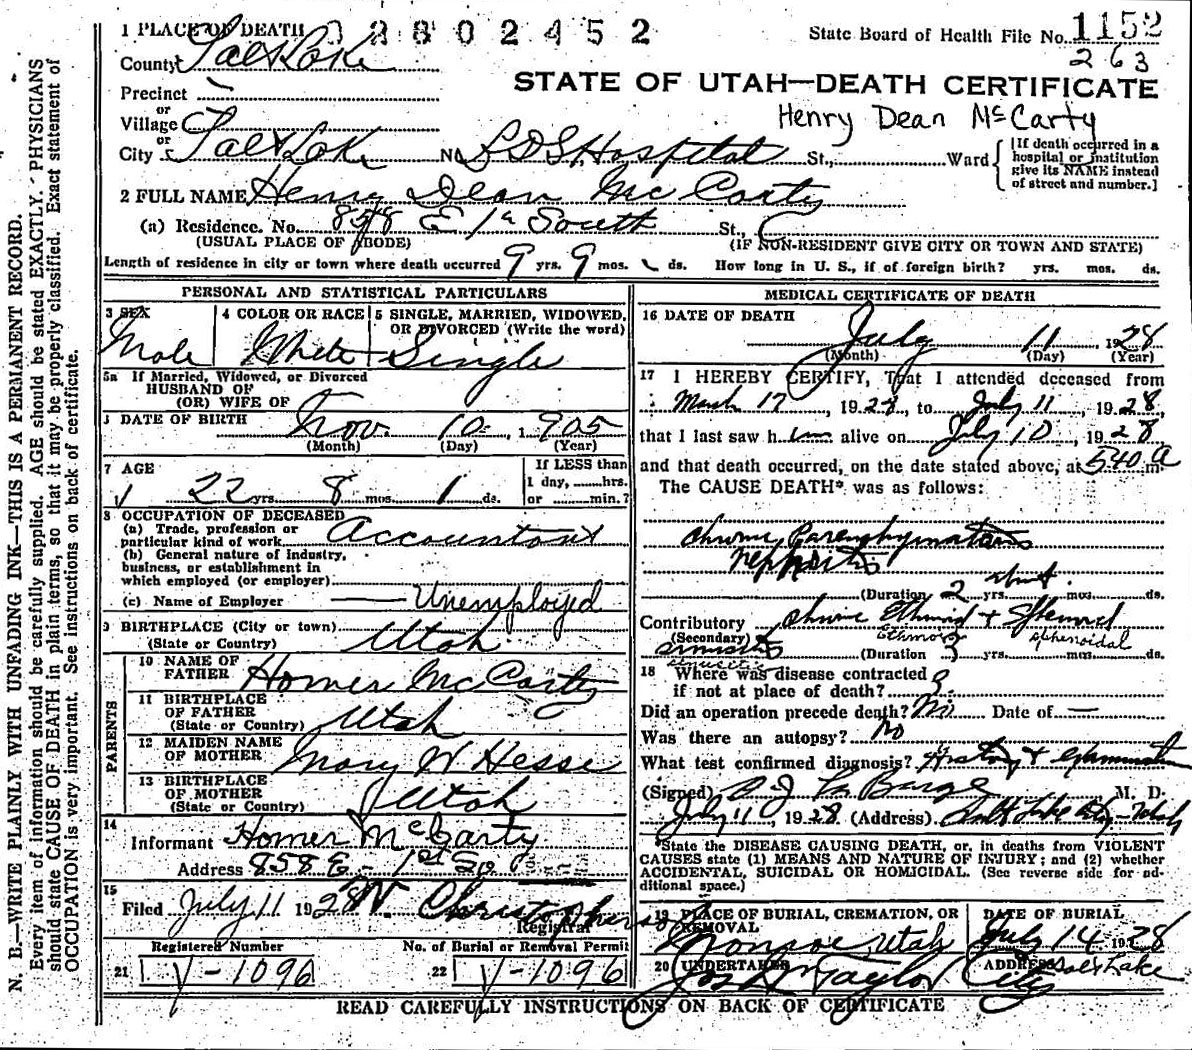 1 PLACE OF DEATH 02802452
State Board of Health File No. 1152
263
County Salt Lake
STATE OF UTAH—DEATH CERTIFICATE
Precinct
or
Village
Henry Dean McCarty
or
City Salt Lake No. L D S Hospital St., Ward
[If death occurred in a hospital or institution give its NAME instead of street and number.]
2 FULL NAME Henry Dean McCarty
(a) Residence. No. 858 E 1st South St.,
(USUAL PLACE OF ABODE) (IF NON-RESIDENT GIVE CITY OR TOWN AND STATE)
Length of residence in city or town where death occurred 9 yrs. 9 mos. ds. How long in U. S., if of foreign birth? yrs. mos. ds.
PERSONAL AND STATISTICAL PARTICULARS
3 SEX 4 COLOR OR RACE 5 SINGLE, MARRIED, WIDOWED, OR DIVORCED (Write the word)
Male White Single
5a If Married, Widowed, or Divorced
HUSBAND OF
(OR) WIFE OF
DATE OF BIRTH Nov. 10 1905
(Month) (Day) (Year)
7 AGE If LESS than
1 day, hrs.
22 yrs. 8 mos. 1 ds. or min.?
8 OCCUPATION OF DECEASED
(a) Trade, profession or
particular kind of work Accountant
(b) General nature of industry,
business, or establishment in
which employed (or employer)
(c) Name of Employer Unemployed
9 BIRTHPLACE (City or town)
(State or Country) Utah
PARENTS
10 NAME OF
FATHER Homer McCarty
11 BIRTHPLACE
OF FATHER
(State or Country) Utah
12 MAIDEN NAME
OF MOTHER Mary W Hesse
13 BIRTHPLACE
OF MOTHER
(State or Country) Utah
14
Informant Homer McCarty
Address 858 E - 1st So
15
Filed July 11 1928 Christopherson
Registrar
Registered Number No. of Burial or Removal Permit
21 V-1096 22 V-1096
MEDICAL CERTIFICATE OF DEATH
16 DATE OF DEATH
July 11 1928
(Month) (Day) (Year)
17 I HEREBY CERTIFY, That I attended deceased from
March 17, 1928, to July 11, 1928,
that I last saw him alive on July 10, 1928
and that death occurred, on the date stated above, at 540 a m.
The CAUSE DEATH* was as follows:
Chronic Parenchymatous
nephritis
about
(Duration 2 yrs. mos. ds.
Contributory Chronic Ethmoid + Sphenoid
(Secondary) Ethmoid sphenoidal
sinusitis (Duration 3 yrs. mos. ds.
sinusitis
18 Where was disease contracted
if not at place of death? ?
Did an operation precede death? No Date of —
Was there an autopsy? No
What test confirmed diagnosis? History + Examination
(Signed) La Barge M. D.
July 11, 1928 (Address) Salt Lake City - Utah
*State the DISEASE CAUSING DEATH, or, in deaths from VIOLENT
CAUSES state (1) MEANS AND NATURE OF INJURY; and (2) whether
ACCIDENTAL, SUICIDAL OR HOMICIDAL. (See reverse side for ad-
ditional space.)
19 PLACE OF BURIAL, CREMATION, OR REMOVAL DATE OF BURIAL
Monroe Utah July 14 1928
20 UNDERTAKER ADDRESS Salt Lake
Jos Wm Taylor City
READ CAREFULLY INSTRUCTIONS ON BACK OF CERTIFICATE
N. B.—WRITE PLAINLY WITH UNFADING INK—THIS IS A PERMANENT RECORD.
Every item of information should be carefully supplied. AGE should be stated EXACTLY. PHYSICIANS
should state CAUSE OF DEATH in plain terms, so that it may be properly classified. Exact statement of
OCCUPATION is very important. See instructions on back of certificate.